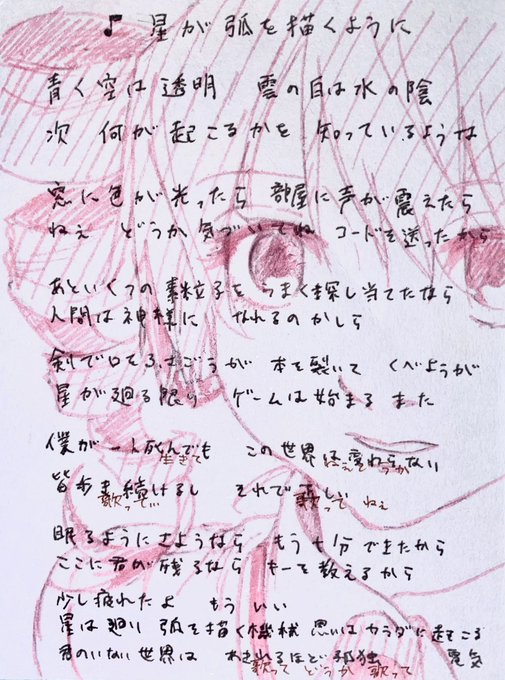 ♪ 星が弧を描くように
青く空は透明 雲の白は水の陰
次 何が起こるかを 知っているような
窓に色が光ったら 部屋に声が震えたら
ねぇ どうか気づいてね コードを送ったから
あといくつの素粒子を うまく探し当てたなら
人間は神様に なれるのかしら
剣で口をふさごうが 本を裂いて くべようが
星が廻る限り ゲームは始まる また
僕が一人死んでも この世界は変わらない
生きて
皆歩き続けるし それで
歌って 歌って ねぇ
眠るようにさようなら もう十分できたから
ここに君が残るなら キーを教えるから
少し疲れたよ もういい
星は廻り 弧を描く機械 思いはカラダに起こる
電気
君のいない世界は あきれるほど孤独
歌って どうか 歌って